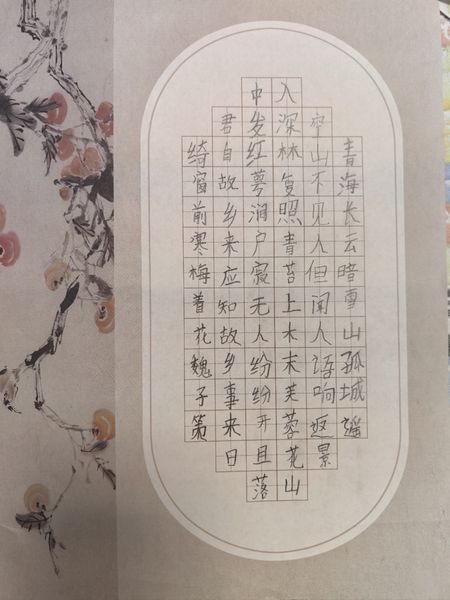 青海长云暗雪山孤城遥
空山不见人但闻人语响返景
入深林复照青苔上木末芙蓉花山
中发红萼涧户寂无人纷纷开且落
君自故乡来应知故乡事来日
绮窗前寒梅着花魏子第